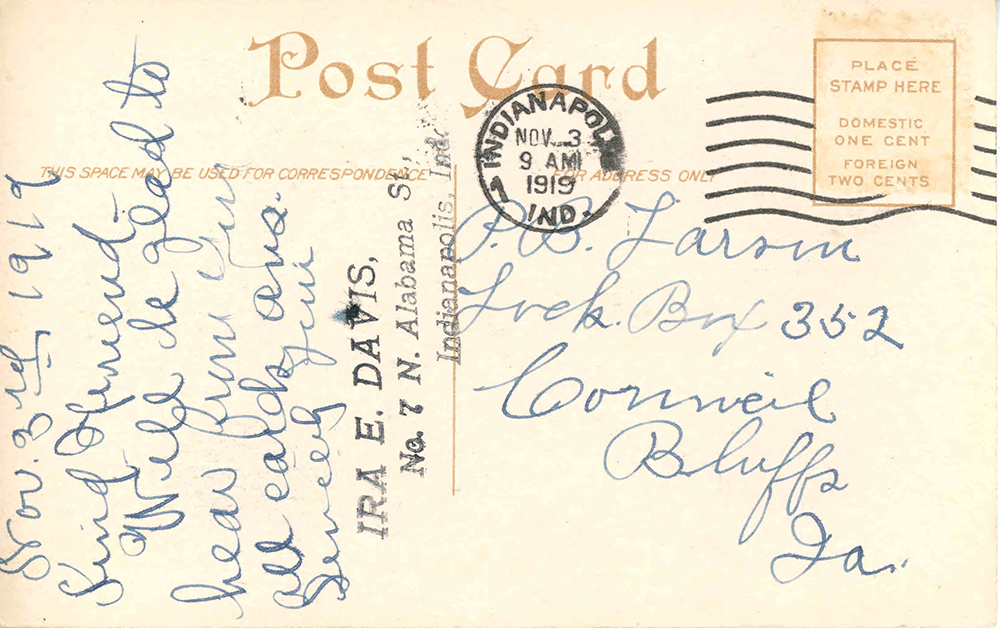 Post Card
THIS SPACE MAY BE USED FOR CORRESPONDENCE
FOR ADDRESS ONLY
PLACE
STAMP HERE
DOMESTIC
ONE CENT
FOREIGN
TWO CENTS
INDIANAPOLIS
NOV 3
9 AM
1919
IND.
1
Nov. 3rd, 1919
Kind Friend-
Will be glad to
hear from you
all cards ans.
IRA E. DAVIS,
No. 7 N. Alabama St.,
Indianapolis, Ind.
P. B. Larson
Lock Box 352
Council
Bluffs
Ia.